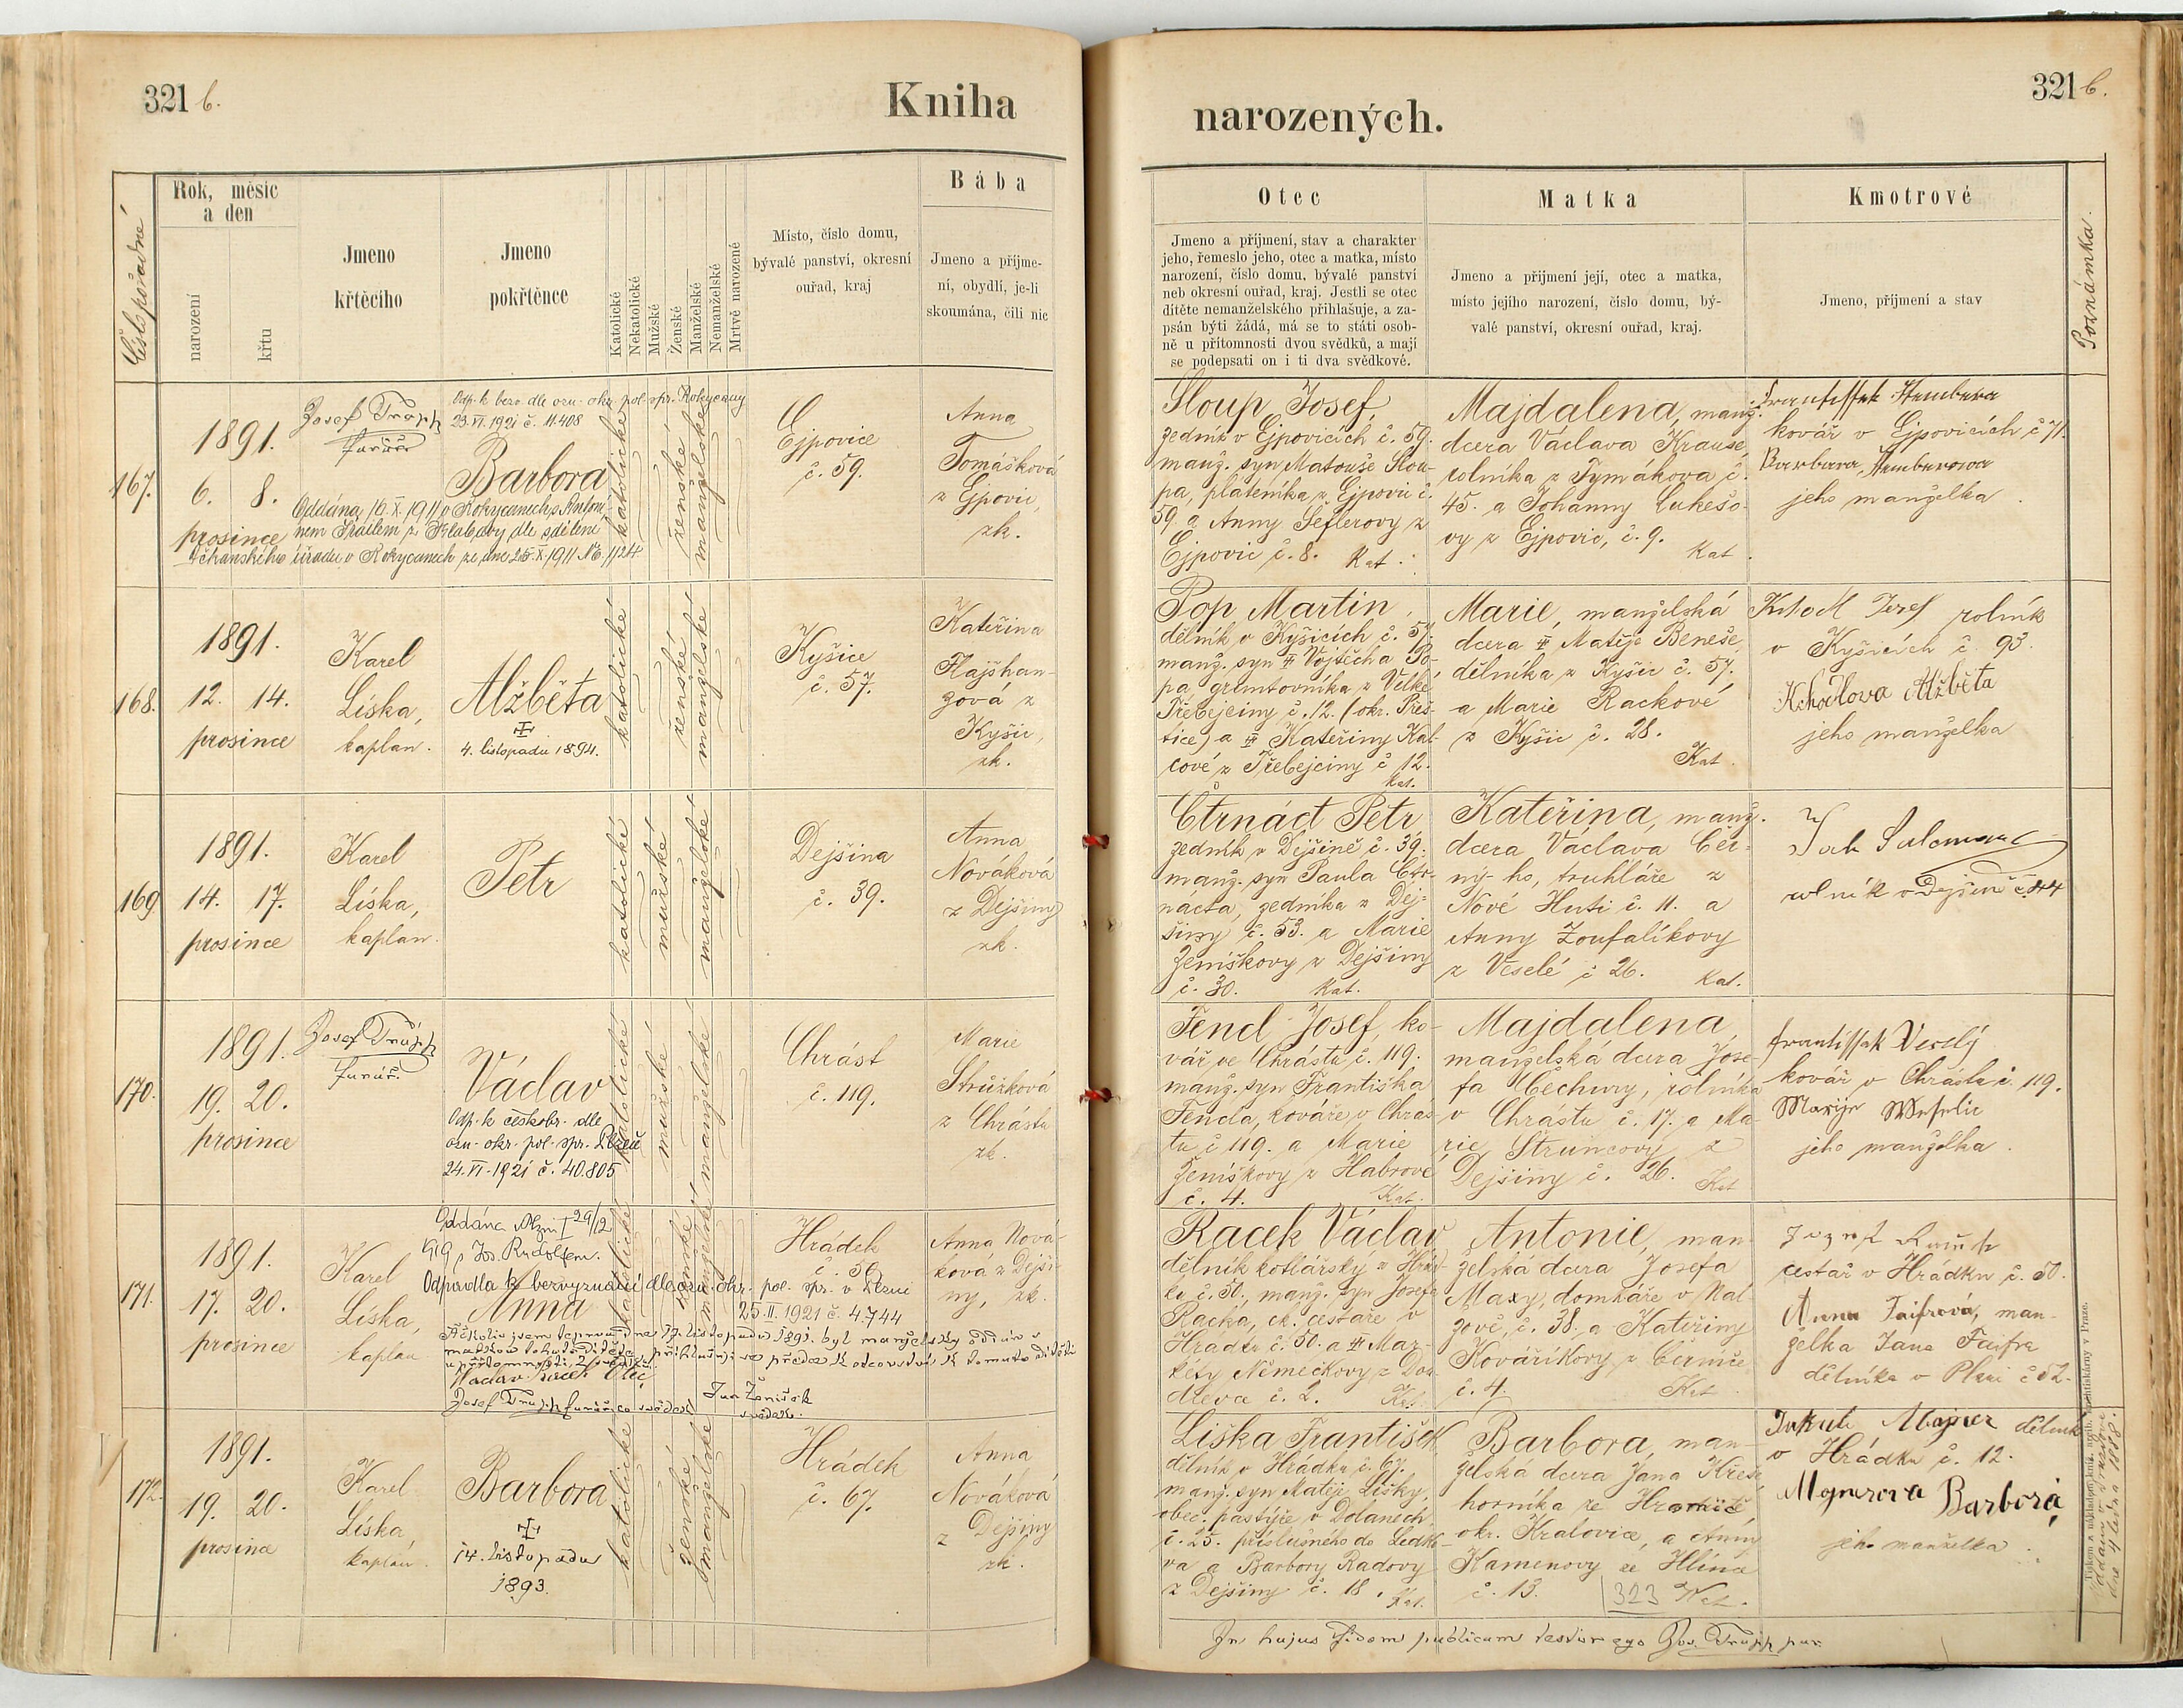 321 b.
Kniha
Číslo pořadné
Rok, měsíc
a den
narození
křtu
Jmeno
křtěcího
Jmeno
pokřtěnce
Katolické
Nekatolické
Mužské
Ženské
Manželské
Nemanželské
Mrtvě narozené
Místo, číslo domu,
bývalé panství, okresní
ouřad, kraj
Bába
Jmeno a příjme-
ní, obydlí, je-li
skoumána, čili nic
167.
1891.
6. 8.
prosince
Josef
farář
Odp. k bezv. dle ozn. okr. pol. spr. Rokycany
23. VI. 1921 č. 11.408
Barbora
Oddána 16. X. 1911 v Rokycanech s Antoní-
nem z Klabavy dle sdělení
děkanského úřadu v Rokycanech ze dne 25. X. 1911 No. 1124
katolické
ženské
manželské
Ejpovice
č. 59.
Anna
Tomášková
z Ejpovic,
zk.
168.
1891.
12. 14.
prosince
Karel
Líska,
kaplan.
Alžběta
4. listopadu 1894.
katolické
ženské
manželské
Kyšice
č. 57.
Kateřina
Hajšman-
zová z
Kyšic,
zk.
169
1891.
14. 17.
prosince
Karel
Líska,
kaplan.
Petr
katolické
mužské
manželské
Dejšina
č. 39.
Anna
Nováková
z Dejšiny
zk.
170.
1891.
19. 20.
prosince
Josef
farář.
Václav
Odp. k českobr. dle
ozn. okr. pol. spr. Plzeň
24. VI. 1921 č. 40.805
katolické
mužské
manželské
Chrást
č. 119.
Marie
Strůžková
z Chrástu
zk.
171.
1891.
17. 20.
prosince
Karel
Líska,
kaplan
Oddána Plzni I 29/12
1919 s Jos. Rudolfem.
Odpadla k bezvyznání dle ozn. okr. pol. spr. v Plzni
25. II. 1921 č. 4.744
Anna
Ačkoliv jsem teprve dne 17. listopadu 1891. byl manželsky oddán s
matkou tohoto dítěte, přihlašuji se přece k otcovství k tomuto dítěti
u přítomnosti 2 svědků.
Václav Racek otec
Josef farář co svědek
Jan Ženíšek
svědek.
katolické
ženské
manželské
Hrádek
č. 50
Anna Nová-
ková z Dejši-
ny, zk.
172.
1891.
19. 20.
prosince
Karel
Líska,
kaplan.
Barbora
14. listopadu
1893.
katolické
ženské
manželské
Hrádek
č. 67.
Anna
Nováková
z Dejšiny
zk.
321 b.
narozených.
Otec
Jmeno a příjmení, stav a charakter
jeho, řemeslo jeho, otec a matka, místo
narození, číslo domu, bývalé panství
neb okresní ouřad, kraj. Jestli se otec
dítěte nemanželského přihlašuje, a za-
psán býti žádá, má se to státi osob-
ně u přítomnosti dvou svědků, a mají
se podepsati on i ti dva svědkové.
Matka
Jmeno a příjmení její, otec a matka,
místo jejího narození, číslo domu, bý-
valé panství, okresní ouřad, kraj.
Kmotrové
Jmeno, příjmení a stav
Poznámka.
Sloup Josef,
zedník v Ejpovicích č. 59.
manž. syn Matouše Slou-
pa, pláteníka z Ejpovic č.
59. a Anny Šeflerovy z
Ejpovic č. 8. Kat.
Majdalena, manž.
dcera Václava Krause,
rolníka z Tymákova č.
45. a Johanny Lukešo-
vy z Ejpovic, č. 9.
Kat.
kovář v Ejpovicích č 71.
jeho manželka.
Pop Martin,
dělník v Kyšicích č. 57.
manž. syn Vojtěcha Po-
pa, gruntovníka z Velké
Třebejciny č. 12. (okr. Přeš-
tice) a Kateřiny Kal-
cové z Třebejciny č 12.
Kat.
Marie, manželská
dcera Matěje Beneše,
dělníka z Kyšic č. 57.
a Marie Rackové
z Kyšic č. 28.
Kat.
rolník
v Kyšicích č. 93.
Alžběta
jeho manželka
Čtrnáct Petr
zedník v Dejšině č. 39.
manž. syn Paula Čtr-
nácta, zedníka z Dej-
šiny č. 53. a Marie
Ženíškovy z Dejšiny
č. 30. Kat.
Kateřina, manž.
dcera Václava Čer-
ný-ho, truhláře z
Nové Huti č. 11. a
Anny Zoufalíkovy
z Veselé č 26.
Kat.
rolník v Dejšině č 44
Fencl Josef, ko-
vář ve Chrástu č. 119.
manž. syn Františka
Fencla, kováře v Chrás-
tu č 119. a Marie
Ženíškovy z Habrové
č. 4. Kat.
Majdalena,
manželská dcera Jose-
fa Čechury, rolníka
v Chrástu č. 17. a Ma-
rie Struncovy z
Dejšiny č. 26. Kat
Veselý
kovář v Chrástu č. 119.
jeho manželka.
Racek Václav
dělník kotlářský z Hrád-
ku č. 50., manž. syn Josefa
Racka, ck. cestáře v
Hrádku č. 50. a Mar-
kéty Němečkovy z Dou-
dleva č. 2. Kat.
Antonie, man-
želská dcera Josefa
Maxy, domkáře v Mal-
č. 38., a Kateřiny
Kováříkovy z Černíče
č. 4. Kat
cestář v Hrádku č. 50.
Anna Faifrová, man-
želka Jana Faifra
dělníka v Plzni č 52.
Liška František
dělník v Hrádku č. 67.
manž. syn Matěje Lišky,
obec. pastýře v Dolanech
č. 25. příslušného do Ledko-
va a Barbory Radovy
z Dejšiny č. 18. Kat.
Barbora, man-
želská dcera Jana
horníka ze
okr. Kralovice, a Anny
Kamenovy ze Hlína
č. 13. 323 Kat.
Jakub dělník
v Hrádku č. 12.
Barbora,
jeho manželka
In hujus fidem publicam testor ego Jos. par.